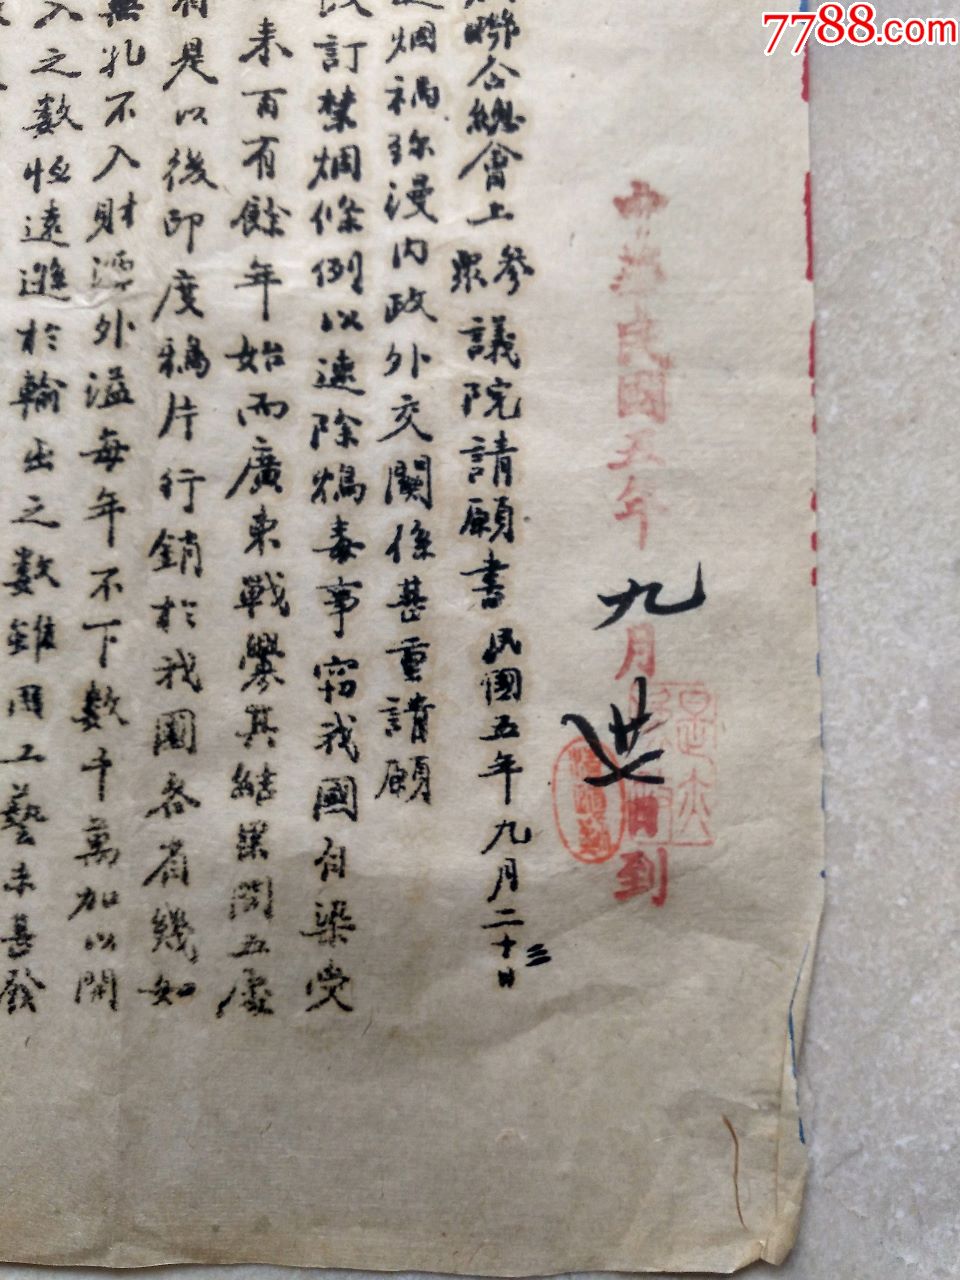 7788.com
中華民國五年九月廿日到
聯合總會上參眾議院請願書民國五年九月二十三日
烟禍瀰漫內政外交關係甚重請願
訂禁烟條例以速除鴆毒事窃我國自染受
來百有餘年始而廣東戰釁其結果開五處
是以後印度鴉片行銷於我國各省幾如
無孔不入財源外溢每年不下數千萬加以開
入之數恒遠遜於輸出之數雖因工藝未甚發